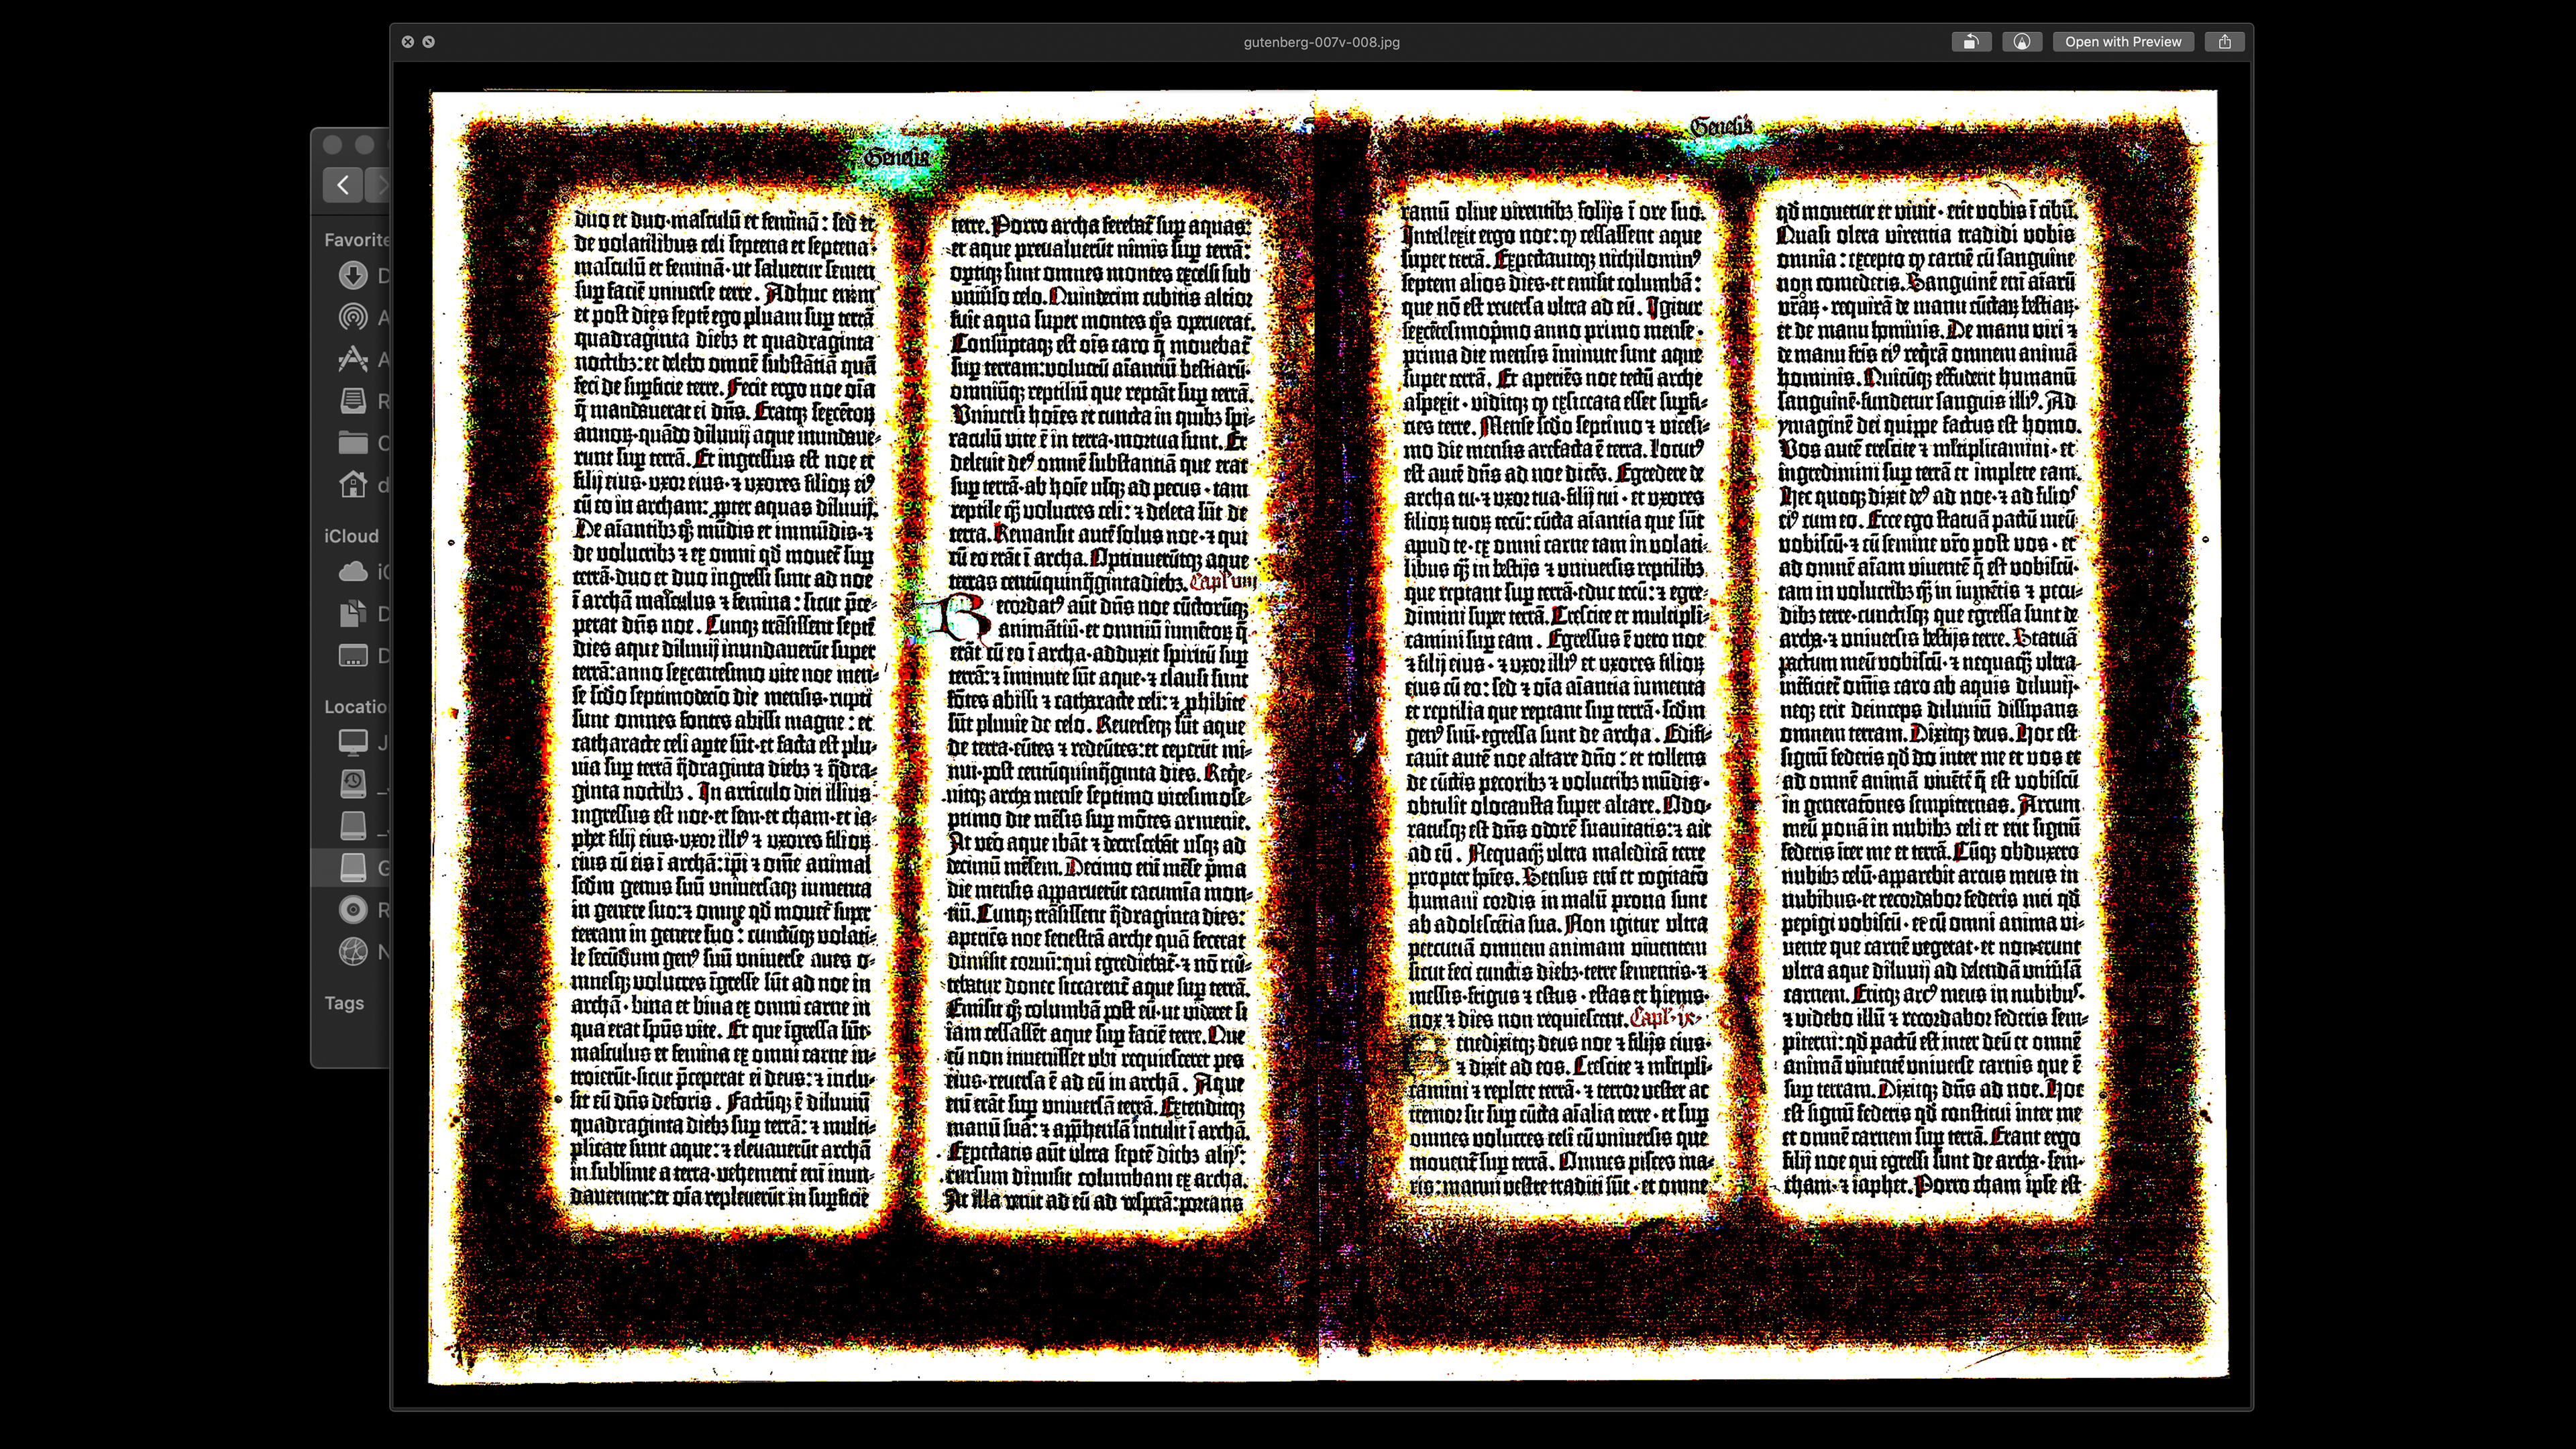 gutenberg-007v-008.jpg
Open with Preview
Favorite
iCloud
Locatio
Tags
Genesis
duo et duo·masculū et feminā: sed et
de volatilibus celi septena et septena·
masculū et feminā·ut saluetur semen
sup faciē universe terre. Adhuc enim
et post dies septē ego pluam sup terrā
quadraginta diebȝ et quadraginta
noctibȝ: et delebo omnē substātiā quā
feci de supficie terre. Fecit ergo noe oīa
q̄ mandauerat ei dn̄s. Eratqȝ sexcētoꝝ
annoꝝ·quādo diluuij aque inundaue-
runt sup terrā. Et ingressus est noe et
filij eius·vxor eius·⁊ vxores filioꝝ eiꝰ
cū eo in archam: ꝓpter aquas diluuij.
De aīantibȝ qꝫ mūdis et immūdis·⁊
de volucribȝ ⁊ ex omni qd̄ mouet̄ sup
terrā·duo et duo ingressi sunt ad noe
ī archā masculus ⁊ femina: sicut p̄ce-
perat dn̄s noe. Cunqȝ trāsissent septē
dies aque diluuij inundauerūt super
terrā: anno sexcentesimo vite noe men-
se scd̄o septimodecīo die mensis·rupti
sunt omnes fontes abissi magne: et
catharacte celi apte sūt·et facta est plu-
uia sup terrā q̄draginta diebȝ ⁊ q̄dra-
ginta noctibȝ. In articulo diei illius
ingressus est noe·et sem·et cham·et ia-
phet filij eius·vxor illiꝰ ⁊ vxores filioꝝ
eius cū eis ī archā: ip̄i ⁊ om̄e animal
scd̄m genus suū universaqȝ iumenta
in genere suo: ⁊ omne qd̄ mouet̄ super
terram in genere suo: cunctūqȝ volati-
le secūdum genꝰ suū universe aues o-
mnesqȝ volucres īgresse sūt ad noe in
archā·bina et bina ex omni carne in
qua erat spūs vite. Et que īgressa sūt·
masculus et femina ex omni carne in-
troierūt·sicut p̄ceperat ei deus: ⁊ inclu-
sit eū dn̄s deforis. Factūqȝ ē diluuiū
quadraginta diebȝ sup terrā: ⁊ multi-
plicate sunt aque: ⁊ eleuauerūt archā
in sublime a terra·vehement̄ em̄ inun-
dauerunt: et oīa repleuerūt in supficie
terre. Porro archa ferebat̄ sup aquas:
et aque preualuerūt nimis sup terrā:
optiqȝ sunt omnes montes excelsi sub
vniuso celo. Quindecim cubitis altior
fuit aqua super montes qͦs operuerat.
Consūptaqȝ est oīs caro q̄ mouebat̄
sup terram: volucrū aīantiū bestiarū·
omniūqȝ reptiliū que reptāt sup terrā.
Vniuersi hoīes et cuncta in quibȝ spi-
raculū vite ē in terra·mortua sunt. Et
deleuit deꝰ omnē substantiā que erat
sup terrā·ab hoīe usqȝ ad pecus·tam
reptile qꝫ volucres celi: ⁊ deleta sūt de
terra. Remansit autē solus noe·⁊ qui
cū eo erāt ī archa. Optinuerūtqȝ aque
terras centūquinq̄ginta diebȝ. Capl'm viij
Recordatꝰ aūt dn̄s noe cūctorūqȝ
animātiū·et omniū iumētoꝝ q̄
erāt cū eo ī archa·adduxit spiritū sup
terrā: ⁊ iminute sūt aque·⁊ clausi sunt
fōtes abissi ⁊ catharacte celi: ⁊ ꝓhibite
sūt pluuie de celo. Reuerseqȝ sūt aque
de terra·eūtes ⁊ redeūtes: et ceperūt mi-
nui·post centūquinq̄ginta dies. Reqe-
uitqȝ archa mense septimo vicesimose-
ptimo die mēsis sup mōtes armenie.
At veō aque ibāt ⁊ decrescebāt usqȝ ad
decimū mēsem. Decimo eni mēse p̄ma
die mensis apparuerūt cacumīa mon-
tiū. Cunqȝ trāsissent q̄draginta dies:
aperiēs noe fenestrā arche quā fecerat
dimisit coruū: qui egrediebat̄·⁊ nō re-
vertebatur donec siccarent̄ aque sup terrā.
Emisit qꝫ columbā post eū·ut videret si
iam cessassēt aque sup faciē terre. Que
cū non inuenisset vbi requiesceret pes
eius·reuersa ē ad eū in archā. Aque
enī erāt sup vniuersā terrā. Extenditqȝ
manū suā: ⁊ appͬhensā intulit ī archā.
Expectatis aūt ultra septē diebȝ alijs:
rursum dimisit columbam ex archa.
At illa venit ad eū ad vespͬā: portans
Genesis
ramū oliue virentibȝ folijs ī ore suo.
Intellexit ergo noe: qꝫ cessassent aque
super terrā. Expectauitqȝ nichilominꝰ
septem alios dies·et emisit columbā:
que nō est reuersa ultra ad eū. Igitur
sexcētesimop̄mo anno primo mense·
prima die mensis īminute sunt aque
super terrā. Et aperiēs noe tectū arche
aspexit·viditqȝ qꝫ exsiccata esset supfi-
cies terre. Mense scd̄o septimo ⁊ vicesi-
mo die mensis arefacta ē terra. Locutꝰ
est autē dn̄s ad noe dicēs. Egredere de
archa tu·⁊ vxor tua·filij tui·et vxores
filioꝝ tuoꝝ tecū: cūcta aīantia que sūt
apud te·ex omni carne tam in volati-
libus qꝫ in bestijs ⁊ uniuersis reptilibȝ
que reptant sup terrā·educ tecū: ⁊ egre-
dimini super terrā. Crescite et multipli-
camini sup eam. Egressus ē vero noe
⁊ filij eius·⁊ vxor illiꝰ et vxores filioꝝ
eius cū eo: sed ⁊ oīa aīantia iumenta
et reptilia que reptant sup terrā·scd̄m
genꝰ suū·egressa sunt de archa. Edifi-
cauit autē noe altare dn̄o: et tollens
de cūctis pecoribȝ ⁊ volucribȝ mūdis·
obtulit olocausta super altare. Odo-
ratusqȝ est dn̄s odorē suauitatis: ⁊ ait
ad eū. Nequaqꝫ ultra maledicā terre
propter hoīes. Sensus enī et cogitacō
humani cordis in malū prona sunt
ab adolescētia sua. Non igitur ultra
percutiā omnem animam viuentem
sicut feci cunctis diebȝ·terre sementis·⁊
messis·frigus ⁊ estus·estas et hiems·
nox ⁊ dies non requiescent. Capl·ix·
Benedixitqȝ deus noe ⁊ filijs eius·
⁊ dixit ad eos. Crescite ⁊ mltipli-
camini ⁊ replete terrā·⁊ terror vester ac
tremor sit sup cūcta aīalia terre·et sup
omnes volucres celi cū vniuersis que
mouent̄ sup terrā. Omnes pisces ma-
ris·manui vestre traditi sūt·et omne
qd̄ mouetur et viuit·erit vobis ī cibū.
Quasi olera virentia tradidi vobis
omnia: excepto qꝫ carnē cū sanguine
non comedetis. Sanguinē enī aīarū
vr̄aꝝ·requirā de manu cūctaꝝ bestiaꝝ·
et de manu hominis. De manu viri ⁊
de manu fr̄is eiꝰ reqͥrā omnem animā
hominis. Quicūqȝ effuderit humanū
sanguinē·fundetur sanguis illiꝰ. Ad
ymaginē dei quippe factus est homo.
Vos autē crescite ⁊ mltiplicamini·et
ingredimini sup terrā et implete eam.
Hec quoqȝ dixit deꝰ ad noe·⁊ ad filioſ
eiꝰ cum eo. Ecce ego statuā pactū meū
vobiscū·⁊ cū semine vr̄o post vos·et
ad omnē aīam viuentē q̄ est vobiscū·
tam in volucribȝ qꝫ in iumētis ⁊ pecu-
dibȝ terre·cunctisqȝ que egressa sunt de
archa·⁊ vniuersis bestijs terre. Statuā
pactum meū vobiscū·⁊ nequaqꝫ ultra·
interficiet̄ omīs caro ab aquis diluuij·
neqȝ erit deinceps diluuiū dissipans
omnem terram. Dixitqȝ deus. Hoc est
signū federis qd̄ do inter me et vos et
ad omnē animā viuētē q̄ est vobiscū
in generatōnes sempiternas. Arcum
meū ponā in nubibȝ celi et erit signū
federis īter me et terrā. Cūqȝ obduxero
nubibȝ celū·apparebit arcus meus in
nubibus·et recordabor federis mei qd̄
pepigi vobiscū·et cū omni anima vi-
uente que carnē vegetat·et non erunt
ultra aque diluuij ad delendā vniūsā
carnem. Eritqȝ arcꝰ meus in nubibuſ·
⁊ videbo illū ⁊ recordabor federis sem-
piterni: qd̄ pactū est inter deū et omnē
animā viuentē vniuerse carnis que ē
sup terram. Dixitqȝ dn̄s ad noe. Hoc
est signū federis qd̄ constitui inter me
et omnē carnem sup terrā. Erant ergo
filij noe qui egressi sunt de archa·sem·
cham·⁊ iaphet. Porro cham ip̄se est